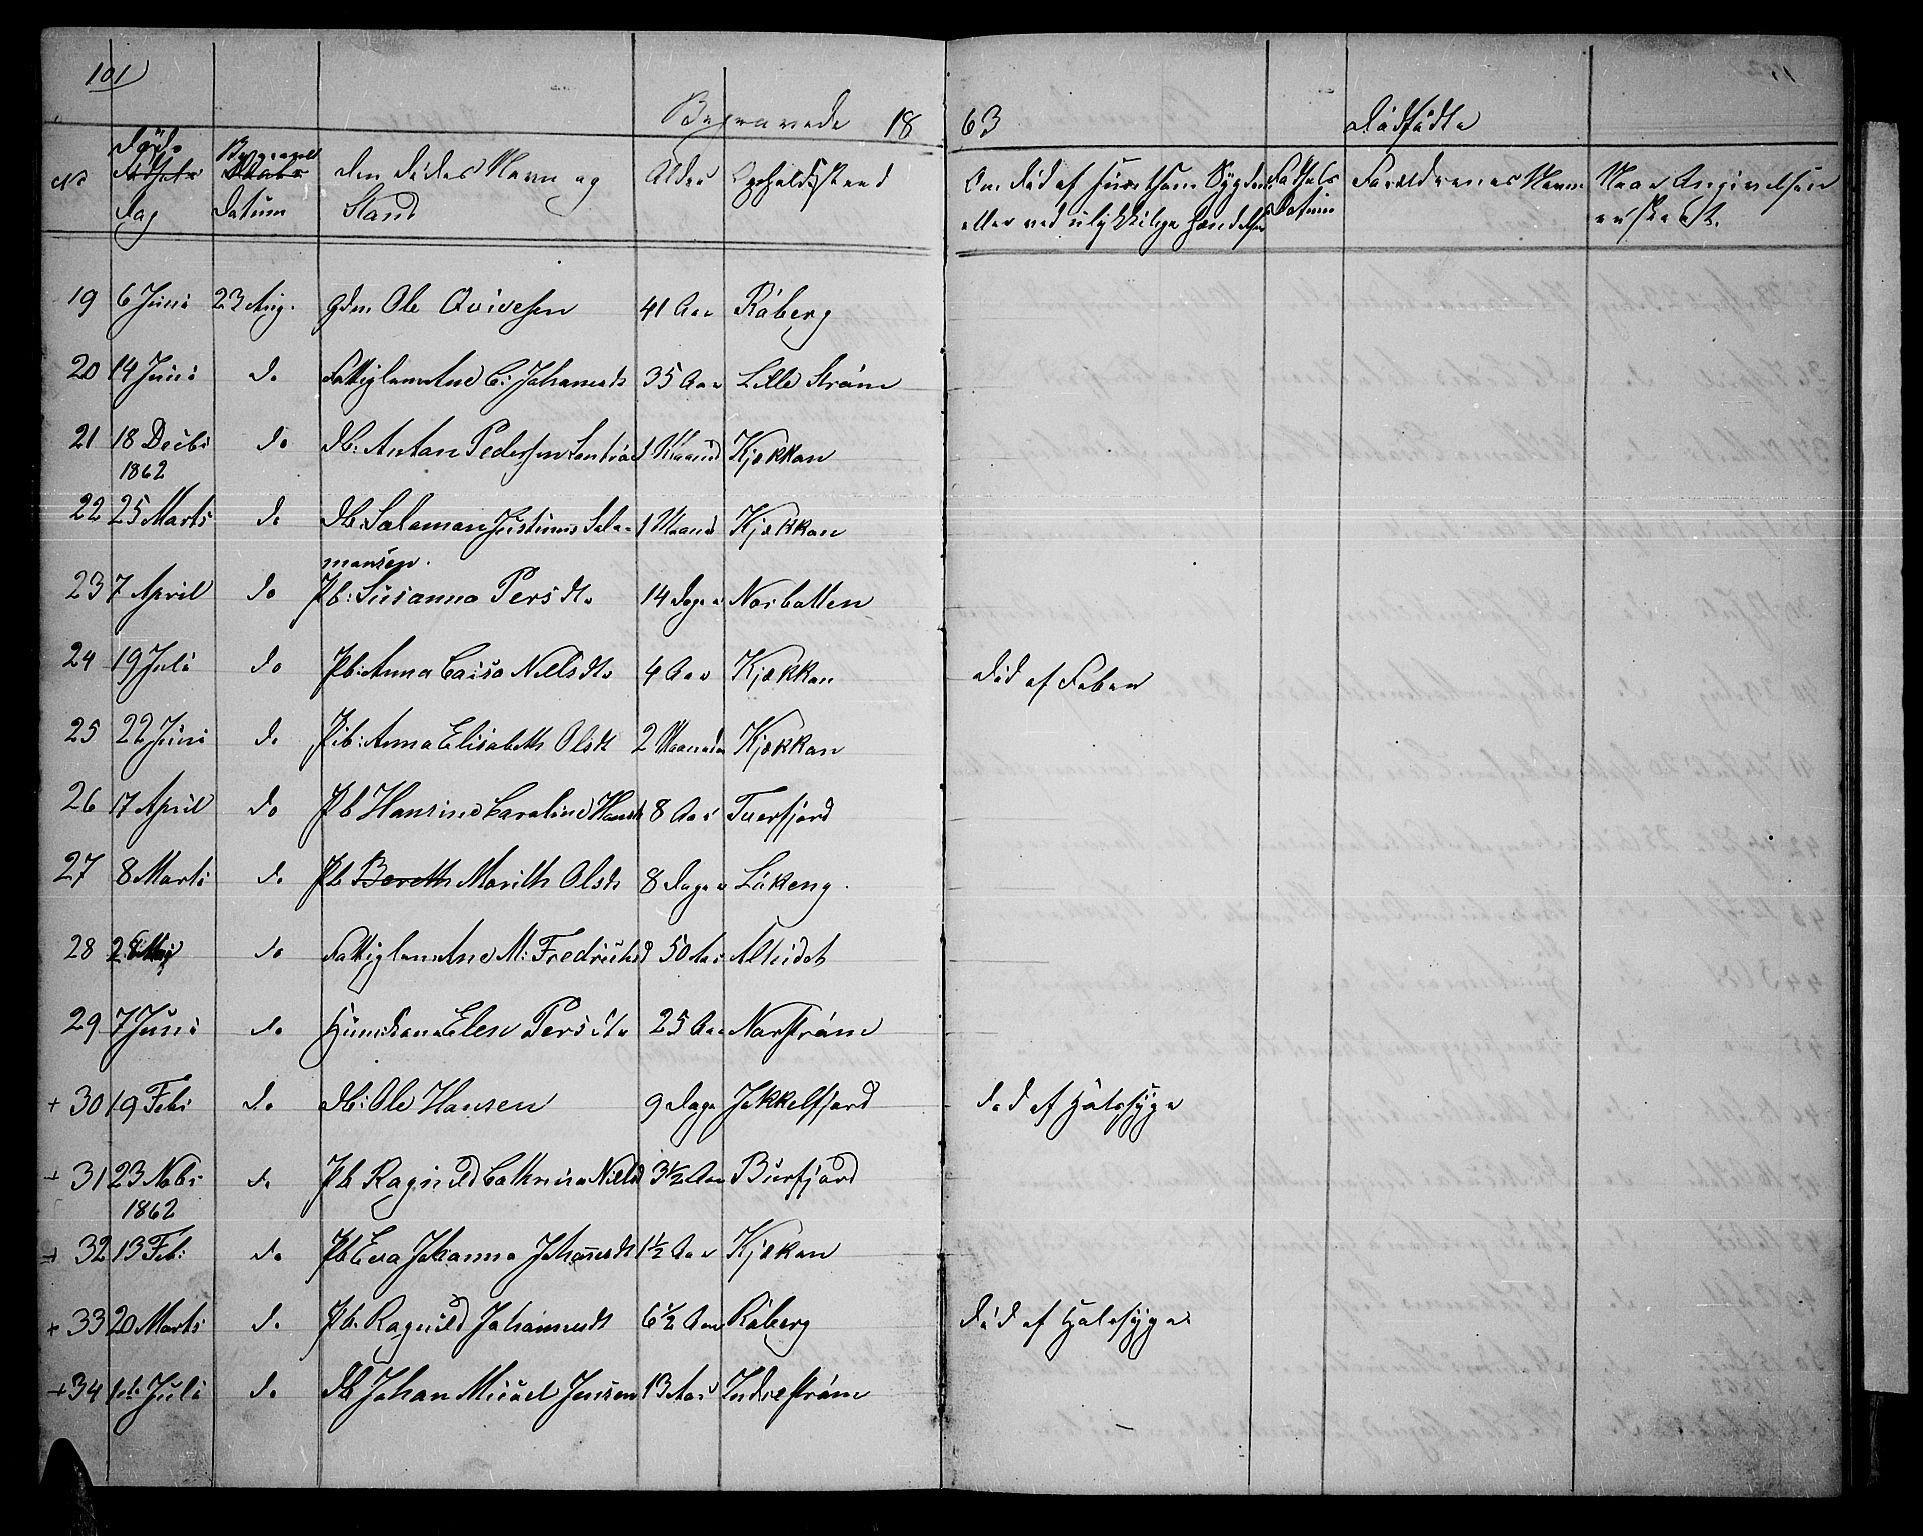 101
Begravede 18 63 Dødfødte
No Døds Fødsels Dag Begravel Daabs Datum Den Dødes Navn og Stand Alder Opholdssted Om død af smitsom Sygdom eller ved ulykkelige Hændelser Fødsels Datum Forældrenes Navne Naar Angivelsen er skeet.
19 6 Juni 23 Aug. gdm Ole Qvivesen 41 Aar Råberg
20 14 Juni do Fattiglem Ane C: Johannesdt 35 Aar Lille Strøm
21 18 Decbr do Db: Anton Pedersen 1 Maaned Kjækkan
1862
22 25 Marts do Db: Salamon Justinus Sala- 1 Maaned Kjækkan
monsen.
23 7 April do Pb: Susanna Persdtr 14 Dage Norbotten
24 19 Juli do Pb: Anna Caisa Nilsdtr 4 Aar Kjækkan død af Feber
25 22 Juni do Pib: Anna Elisabeth Olsdt 2 Maaneder Kjækkan
26 17 April do Pb Hansine Caroline Hansdt 8 Aar Tuerfjord
27 8 Marts do Pb Bereth Marith Olsdt 8 Dage Låkeng.
28 do Fattiglem Ane M: Fredriksd 50 Aar Alteidet
29 7 Juni do Huuskone Elen Persdtr 25 Aar Norstrøm
+ 30 19 Febr do Db: Ole Hansen 9 Dage Jøkkelfjord død af Halssyge
+ 31 23 Nobr do Pb Ragnild Cathrina Nilsd 3½ Aar Burfjord
1862
+ 32 13 Feb: do Pb Eva Johanna Johannesdt 1½ Aar Kjækan
+ 33 20 Marts do Pb. Ragnild Johannesdt 6½ Aar Råberg Død af Halssyge
+ 34 1ste Juli do Db Johan Micael Jensen 13 Aar Indrestrøm